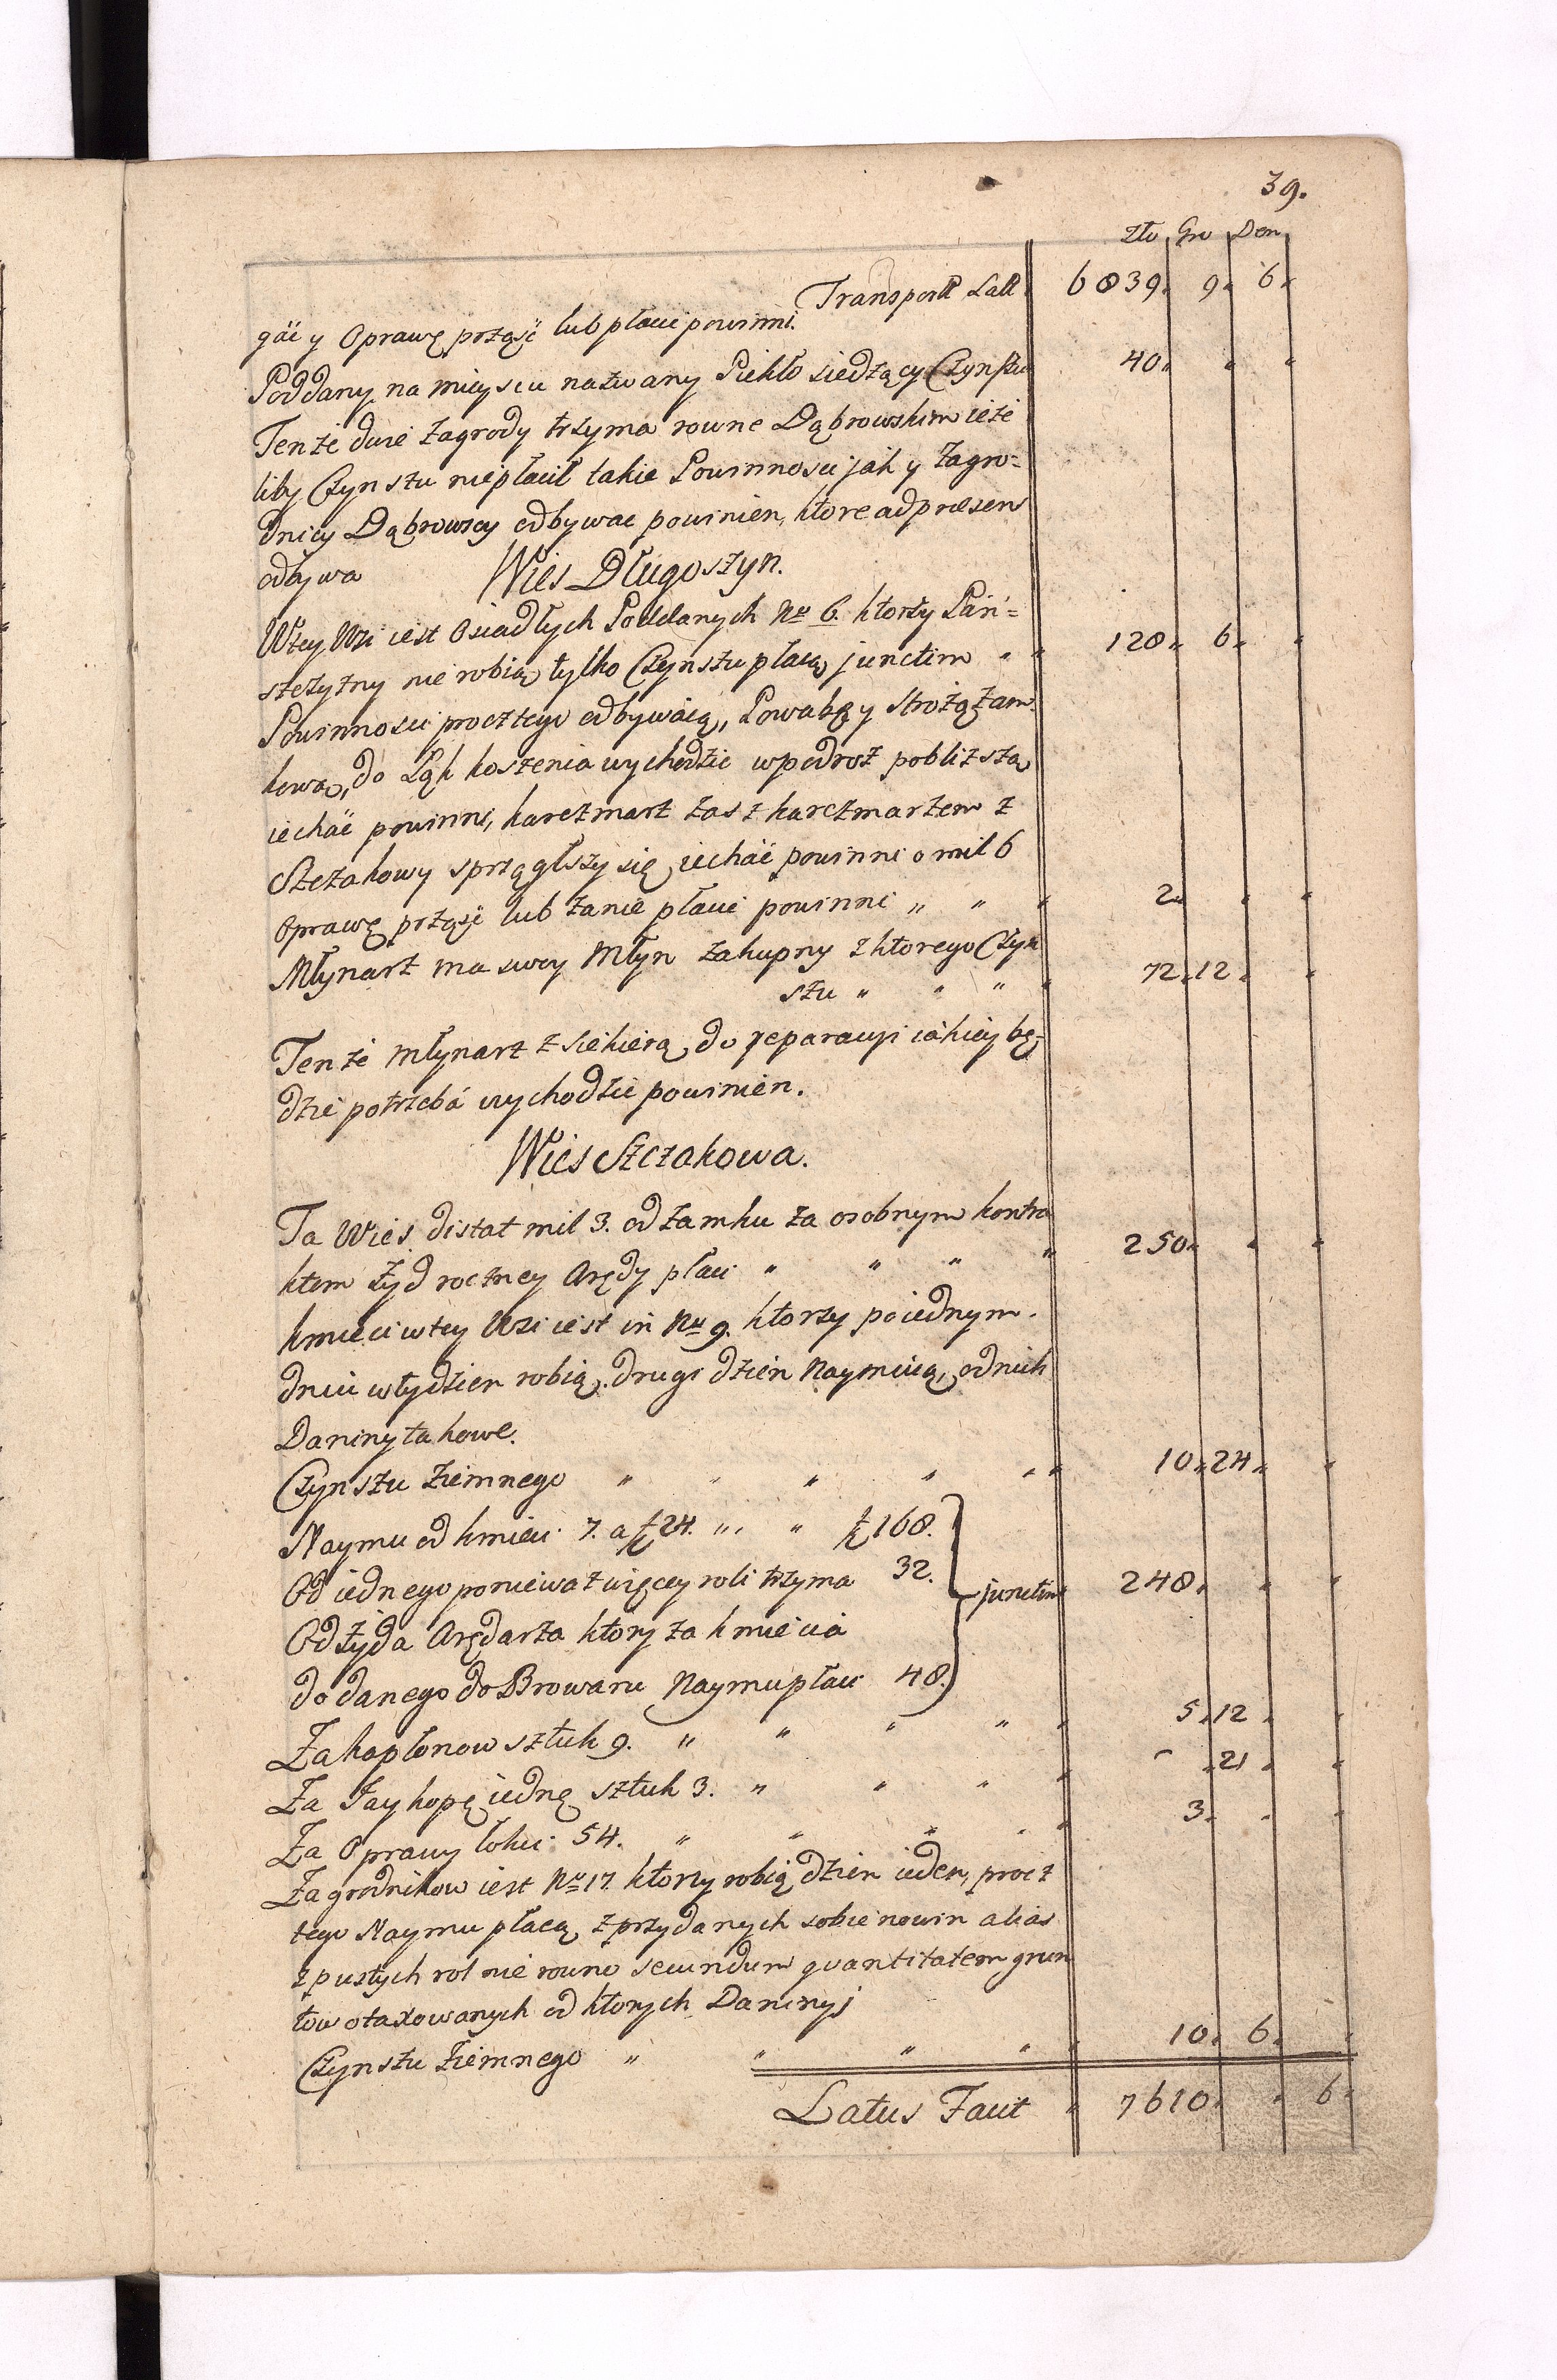 39.
Zło Gro Den
Transport Latt. 6839. 9. 6.
gać y Oprawę prząść lub płacić powinni.
Poddany na mieyscu nazwany Piekło siedzący Czynszu 40. " "
Tenże dwie Zagrody trzyma rowne Dąbrowskim ieże
liby Czynszu niepłacił takie Powinnosci jak y Zagro=
dnicy Dąbrowscy odbywac powinien, ktore ad praesens
odbywa
Wies Długoszyn.
W tey Wsi iest Osiadłych Poddanych Nro 6. ktorzy Pań=
szczyzny nie robią tylko Czynszu płacą junctim " " 128. 6. "
Powinnosci procz tego odbywaią, Powabę y Strożą Zam=
kową, do Łąk koszenia wychodzic w podroż pobliższą
iechać powinni, karczmarz zas z karczmarzem z
Szczakowy sprzągłszy się iechać powinni o mil 6
Oprawę prząść lub za nie płacić powinni " " " 2. " "
Młynarz ma swoy Młyn zakupny z ktorego Czyn
szu " " " " 72. 12. "
Tenże Młynarz z Siekierą do reparacyi iakiey bę=
dzie potrzebá wychodzic powinien.
Wies Szczakowa.
Ta Wies distat mil 3. od Zamku za osobnym kontra
ktem Żyd roczney Arędy płaci " " " " 250. " "
kmieci w tey Wsi iest in Nro 9. ktorzy po iednym.
dniu w tydzien robią. drugi dzien Naymuią, od nich
Daniny takowe.
Czynszu Ziemnego " " " " " " 10. 24. "
Naymu od kmieci 7. a f 24. " " f 168.
Od iednego poniewaz więcey roli trzyma 32. junctim 248. " "
Od Żyda Arędarza ktory za kmiecia
dodanego do Browaru Naymu płaci 48.
Za kapłonow sztuk 9. " " " " " 5. 12. "
Za Jay kopę iednę sztuk 3. " " " " - 21. "
Za Oprawy łokci 54. " " " " " 3. " "
Zagrodnikow iest Nro 17. ktorzy robią dzien ieden, procz
tego Naymu płacą z przydanych sobie nowin alias
z pustych rol nie rowno secundum quantitatem grun
tow otaxowanych od ktorych Daniny j
Czynszu Ziemnego " " " " " 10. 6. "
Latus Facit " 7610. " 6.